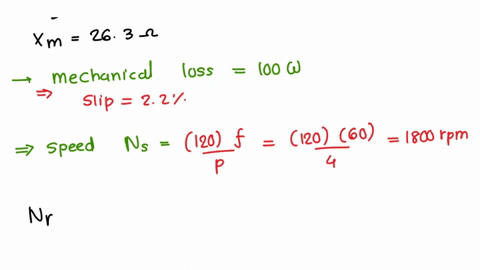 Xm = 26.3 Ω
→ mechanical loss = 100 W
⇒ slip = 2.2%
⇒ speed Ns = (120) f / p = (120) (60) / 4 = 1800 rpm
Nr